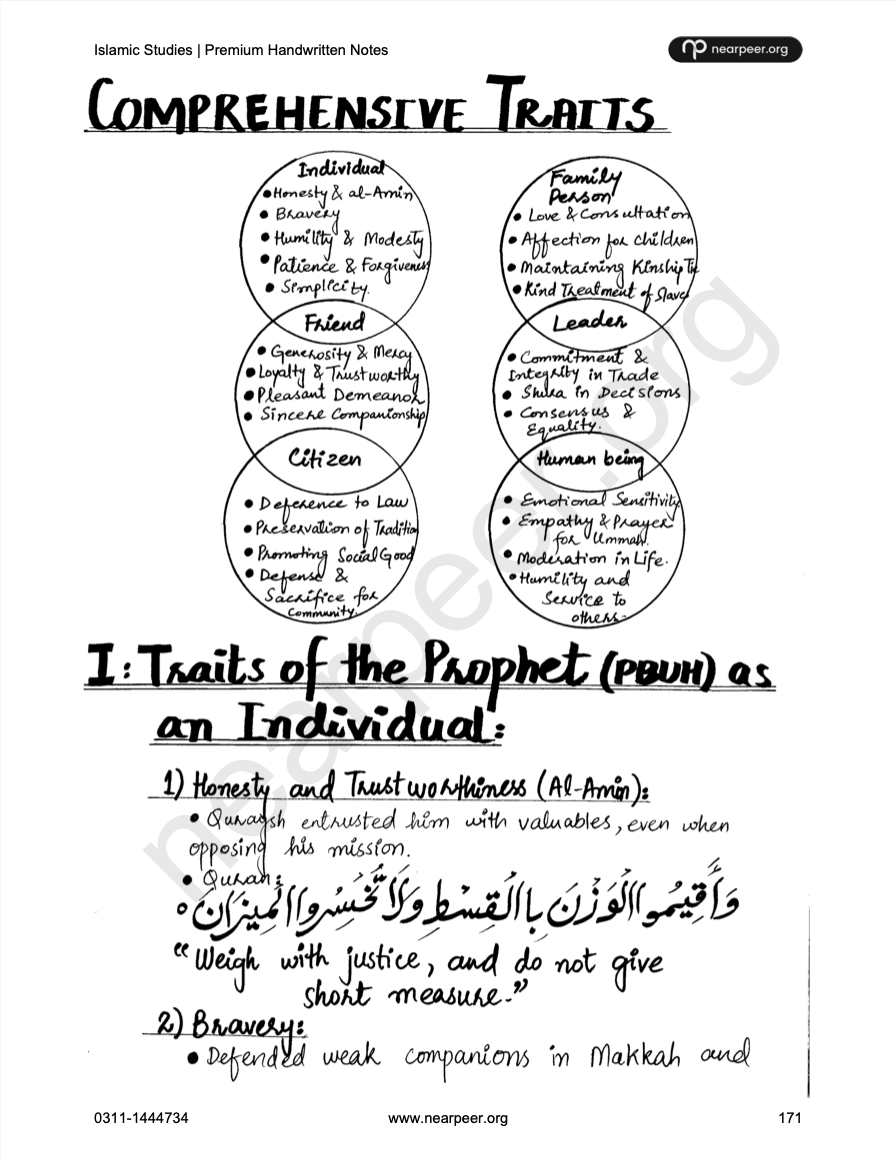 Islamic Studies | Premium Handwritten Notes
nearpeer.org
COMPREHENSIVE TRAITS
Individual
• Honesty & al-Amin
• Bravery
• Humility & Modesty
• Patience & Forgiveness
• Simplicity.
Friend
• Generosity & Mercy
• Loyalty & Trustworthy
• Pleasant Demeanor
• Sincere Companionship
Citizen
• Deference to Law
• Preservation of Tradition
• Promoting Social Good
• Defense &
Sacrifice for
Community.
Family
Person
• Love & Consultation
• Affection for Children
• Maintaining Kinship Tie
• Kind Treatment of Slaves
Leader
• Commitment &
Integrity in Trade
• Shura in Decisions
• Consensus &
Equality.
Human being
• Emotional Sensitivity
• Empathy & Prayer
for Ummah.
• Moderation in Life.
• Humility and
Service to
others.
I: Traits of the Prophet (PBUH) as
an Individual:
1) Honesty and Trustworthiness (Al-Amin):
• Quraysh entrusted him with valuables, even when
opposing his mission.
• Quran:
وَأَقِيمُوا الْوَزْنَ بِالْقِسْطِ وَلَا تُخْسِرُوا الْمِيزَانَ ہ
"Weigh with justice, and do not give
short measure."
2) Bravery:
• Defended weak companions in Makkah and
nearpeer.org
0311-1444734
www.nearpeer.org
171